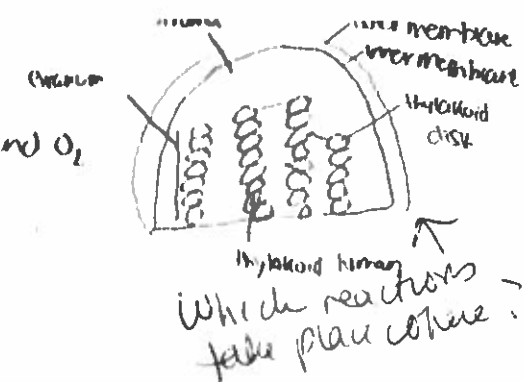 outer membrane
inner membrane
granum
thylakoid
disk
and O₂
thylakoid lumen
Which reactions
take place where?